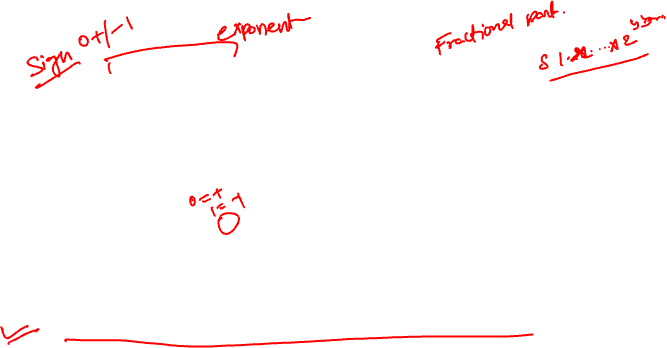 Sign 0+/-1
exponent
Fractional part.
0=+
1=-1